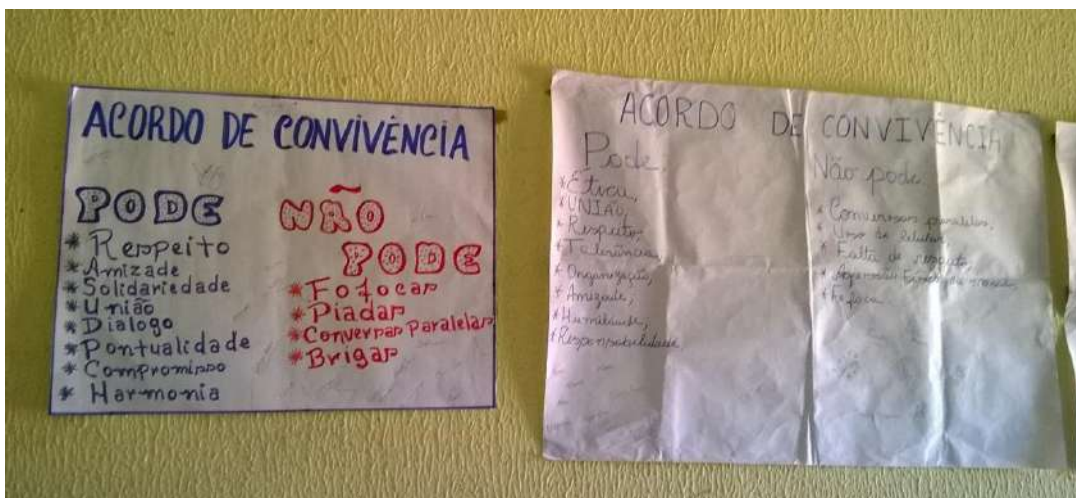 ACORDO DE CONVIVÊNCIA
PODE
* Respeito
* Amizade
* Solidariedade
* União
* Dialogo
* Pontualidade
* Compromisso
* Harmonia
NÃO
PODE
* Fofocas
* Piadas
* Conversas paralelas
* Brigas
ACORDO DE CONVIVÊNCIA
Pode
* Ética,
* UNIÃO,
* Respeito,
* Tolerância,
* Organização,
* Amizade,
* Humildade,
* Responsabilidade
Não pode
* Conversas paralelas,
* Uso de celular,
* Falta de respeito,
* Agressão
* Fofoca